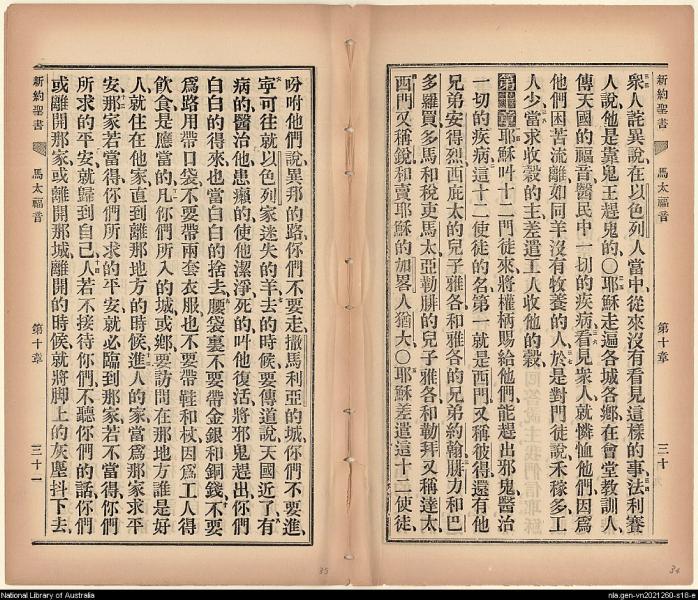 新約聖書 馬太福音 第十章 三十
衆人詫異說、在以色列人當中從來沒有看見這樣的事、法利賽
人說、他是靠鬼王趕鬼的、〇耶穌走遍各城各鄉、在會堂教訓人、
傳天國的福音、醫民中一切的疾病、看見衆人、就憐恤他們、因爲
他們困苦流離、如同羊沒有牧養的人、於是對門徒說、禾稼多、工
人少、當求收穀的主、差遣工人收他的穀、
第十章 耶穌呌十二門徒來、將權柄賜給他們、能趕出邪鬼、醫治
一切的疾病、這十二使徒的名、第一就是西門又稱彼得、還有他
兄弟安得烈、西庇太的兒子雅各、和雅各的兄弟約翰、腓力和巴
多羅買、多馬和稅吏馬太、亞勒腓的兒子雅各、和勒拜又稱達太、
西門又稱銳、和賣耶穌的加畧人猶大、〇耶穌差遣這十二使徒、
吩咐他們說、異邦的路、你們不要走、撒馬利亞的城、你們不要進、
寧可往就以色列家迷失的羊去、去的時候、要傳道說、天國近了、有
病的醫治他、患癩的使他潔淨、死的呌他復活、將邪鬼趕出、你們
白白的得來、也當白白的捨去、腰袋裏不要帶金銀和銅錢、不要
爲路用帶口袋、不要帶兩套衣服、也不要帶鞋和杖、因爲工人得
飲食是應當的、凡你們所入的城或鄉、要訪問在那地方誰是好
人、就住在他家、直到離那地方的時候、進人的家、當爲那家求平
安、那家若當得你們所求的平安、就必臨到那家、若不當得、你們
所求的平安、就歸到自己、人若不接待你們、不聽你們的話、你們
或離開那家、或離開那城、離開的時候、就將脚上的灰塵抖下去、
新約聖書 馬太福音 第十章 三十一
35
34
National Library of Australia
nla.gen-vn2021260-s18-e